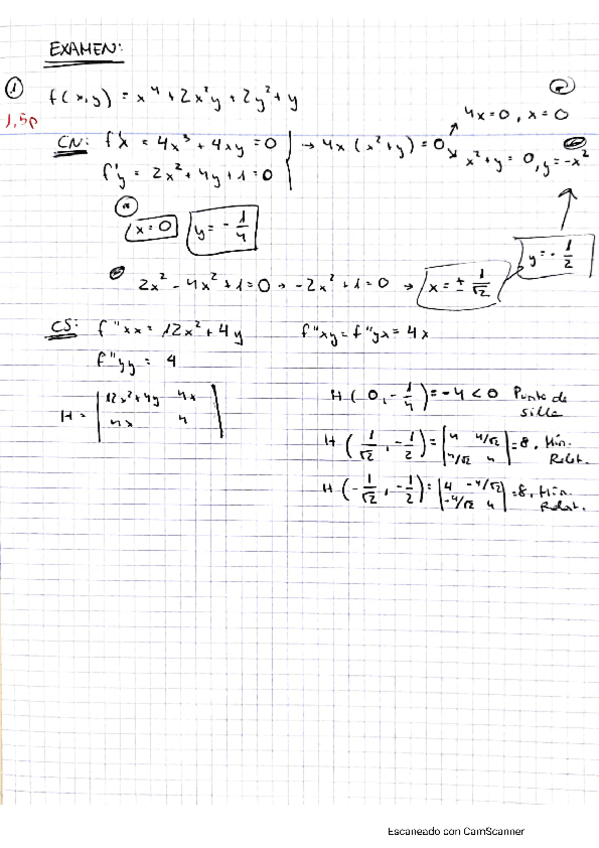 EXAMEN:
① f(x,y) = x⁴ + 2x²y + 2y² + y
1,5p
CN: f'x = 4x³ + 4xy = 0 → 4x(x² + y) = 0 4x = 0, x = 0
f'y = 2x² + 4y + 1 = 0 x² + y = 0, y = -x²
x = 0 y = -1/4
y = -1/2
2x² - 4x² + 1 = 0 → -2x² + 1 = 0 → x = ± 1/√2
CS: f''xx = 12x² + 4y f''xy = f''yx = 4x
f''yy = 4
H = |12x²+4y 4x|
|4x 4|
H(0, -1/4) = -4 < 0 Punto de
silla
H(1/√2, -1/2) = |4 4/√2| = 8. Mín.
|4/√2 4| Relat.
H(-1/√2, -1/2) = |4 -4/√2| = 8. Mín.
|-4/√2 4| Relat.
Escaneado con CamScanner